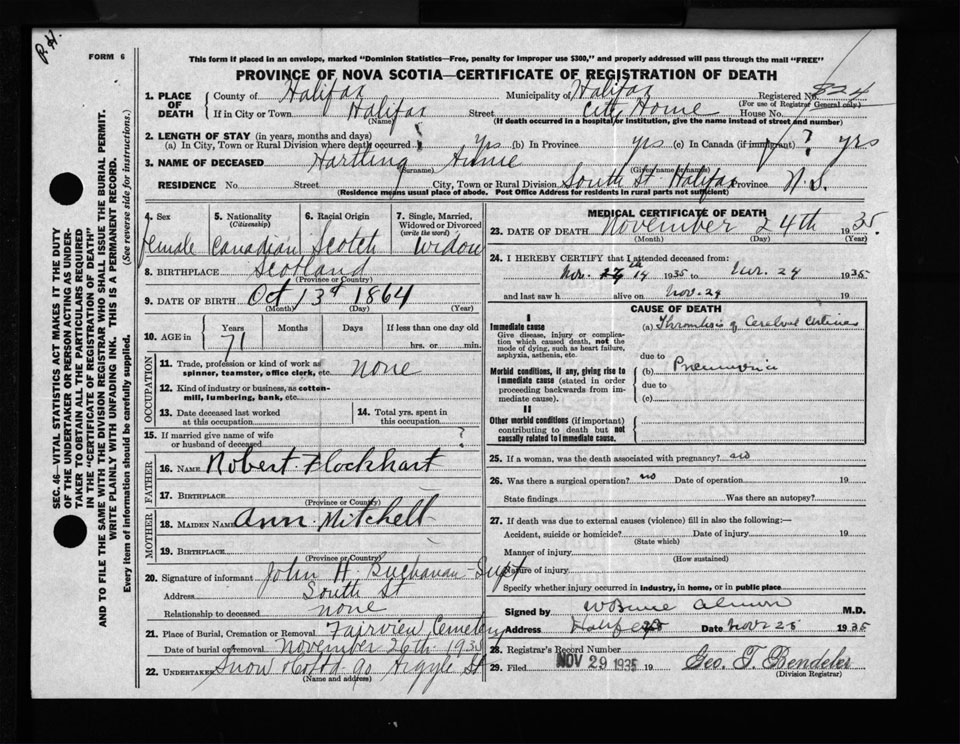 R.H.
FORM 6
This form if placed in an envelope, marked "Dominion Statistics—Free, penalty for improper use $300," and properly addressed will pass through the mail "FREE"
PROVINCE OF NOVA SCOTIA—CERTIFICATE OF REGISTRATION OF DEATH
1. PLACE OF DEATH County of Halifax Municipality of Halifax Registered No. 824
(For use of Registrar General only)
If in City or Town Halifax Street City Home House No.
(Name) (If death occurred in a hospital or institution, give the name instead of street and number)
2. LENGTH OF STAY (in years, months and days)
(a) In City, Town or Rural Division where death occurred ? Yrs (b) In Province yrs (c) In Canada (if immigrant) ? yrs
3. NAME OF DECEASED Hartling Annie
(Surname) (Given name or names)
RESIDENCE No. Street City, Town or Rural Division South St Halifax Province N.S.
(Residence means usual place of abode. Post Office Address for residents in rural parts not sufficient)
SEC. 46—VITAL STATISTICS ACT MAKES IT THE DUTY
OF THE UNDERTAKER OR PERSON ACTING AS UNDER-
TAKER TO OBTAIN ALL THE PARTICULARS REQUIRED
IN THE "CERTIFICATE OF REGISTRATION OF DEATH"
AND TO FILE THE SAME WITH THE DIVISION REGISTRAR WHO SHALL ISSUE THE BURIAL PERMIT.
WRITE PLAINLY WITH UNFADING INK. THIS IS A PERMANENT RECORD.
Every item of information should be carefully supplied. (See reverse side for instructions.)
4. Sex 5. Nationality (Citizenship) 6. Racial Origin 7. Single, Married, Widowed or Divorced (write the word)
Female Canadian Scotch Widow
8. BIRTHPLACE Scotland
(Province or Country)
9. DATE OF BIRTH Oct 13th 1864
(Month) (Day) (Year)
10. AGE in Years Months Days If less than one day old
71 hrs. or min.
OCCUPATION
11. Trade, profession or kind of work as spinner, teamster, office clerk, etc. none
12. Kind of industry or business, as cotton-mill, lumbering, bank, etc.
13. Date deceased last worked at this occupation
14. Total yrs. spent in this occupation
15. If married give name of wife or husband of deceased ?
FATHER
16. NAME Robert Flockhart
17. BIRTHPLACE
(Province or Country)
MOTHER
18. MAIDEN NAME Ann Mitchell
19. BIRTHPLACE
(Province or Country)
20. Signature of informant John H. Buchanan - Supt
Address South St
Relationship to deceased none
21. Place of Burial, Cremation or Removal Fairview Cemetery
Date of burial or removal November 26th 1935
22. UNDERTAKER Snow & Co Ltd 90 Argyle St
(Name and address)
MEDICAL CERTIFICATE OF DEATH
23. DATE OF DEATH November 24th 1935.
(Month) (Day) (Year)
24. I HEREBY CERTIFY that I attended deceased from:
Nov. 14 th 1935 to Nov. 24 1935
and last saw h alive on Nov. 24 19
CAUSE OF DEATH
I
Immediate cause
Give disease, injury or complication which caused death, not the mode of dying, such as heart failure, asphyxia, asthenia, etc.
(a) Thrombosis of Cerebral Arteries
due to
Morbid conditions, if any, giving rise to immediate cause (stated in order proceeding backwards from immediate cause).
(b) Pneumonia
due to
(c)
II
Other morbid conditions (if important) contributing to death but not causally related to immediate cause.
25. If a woman, was the death associated with pregnancy? no
26. Was there a surgical operation? no Date of operation 19
State findings Was there an autopsy?
27. If death was due to external causes (violence) fill in also the following:—
Accident, suicide or homicide? Date of injury 19
(State which)
Manner of injury
(How sustained)
Nature of injury
Specify whether injury occurred in industry, in home, or in public place
Signed by W Bruce Almon M.D.
Address Halifax Date Nov 25 1935
28. Registrar's Record Number
29. Filed NOV 29 1935 19 Geo. T. Bendeler
(Division Registrar)